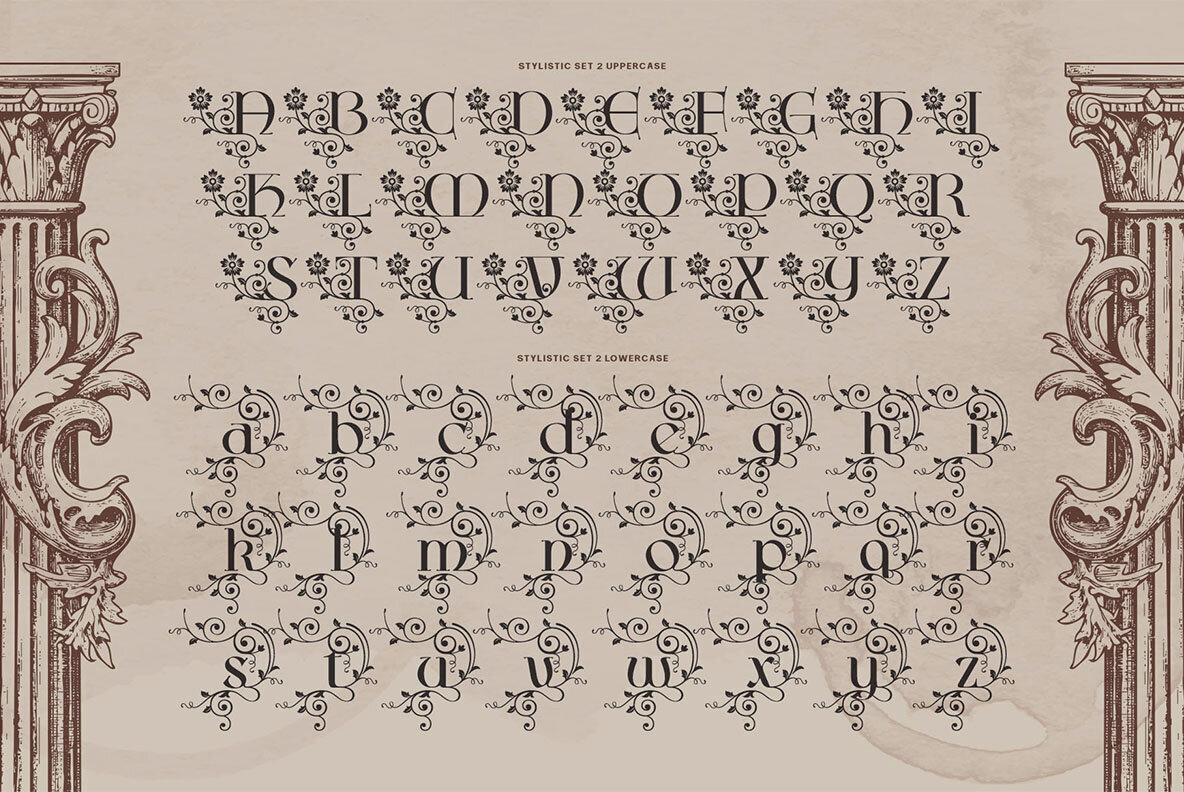 STYLISTIC SET 2 UPPERCASE
A B C D E F G H I
K L M N O P Q R
S T U V W X Y Z
STYLISTIC SET 2 LOWERCASE
a b c d e g h i
k l m n o p q r
s t u v w x y z